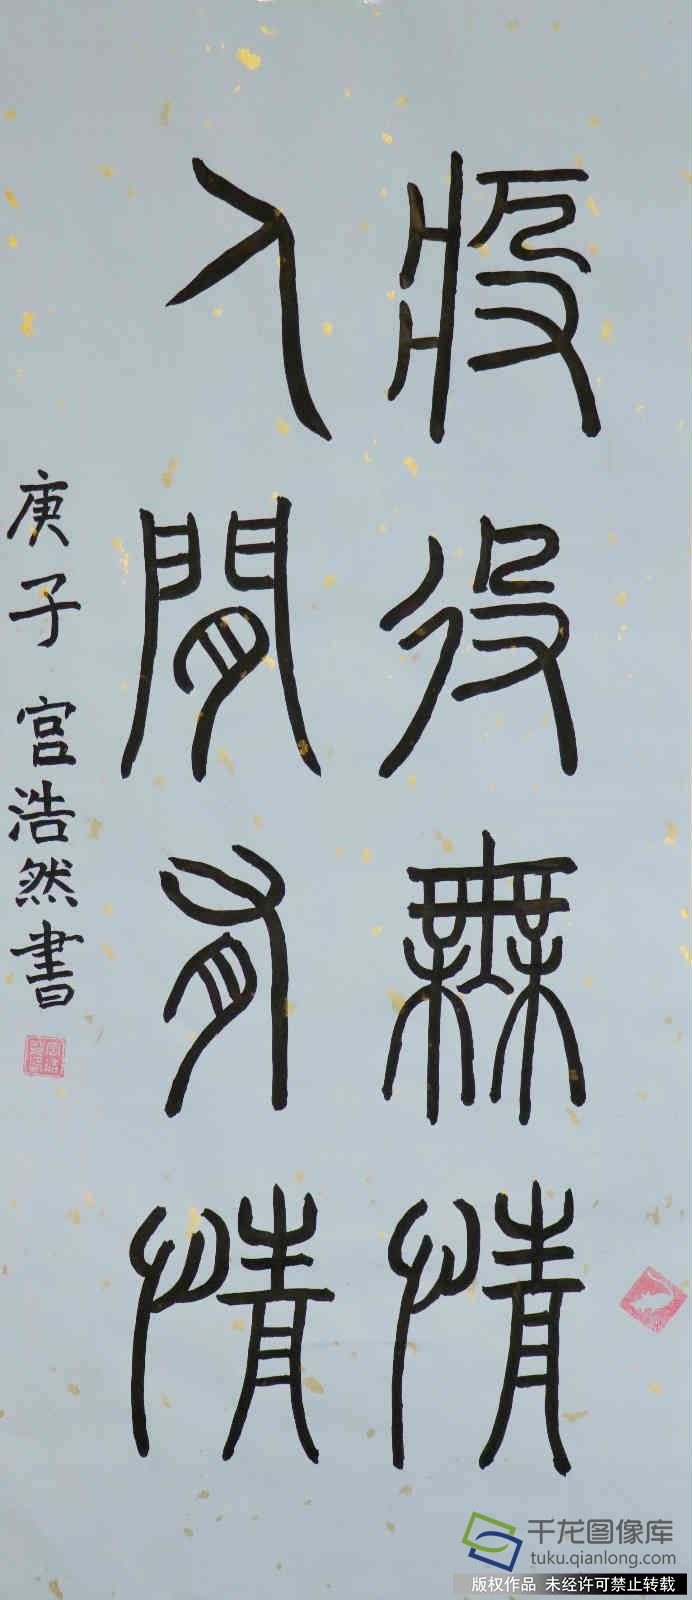 疫役無情
人間有情
庚子 宫浩然書
千龙图像库
tuku.qianlong.com
版权作品 未经许可禁止转载